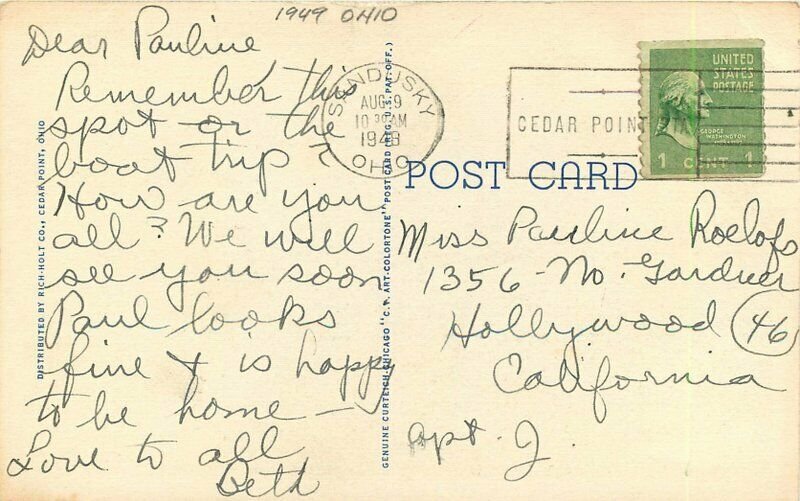 1949 OHIO
Dear Pauline
Remember this
spot or the
boat trip?
How are you
all? We will
see you soon
Paul looks
fine & is happy
to be home –
Love to all
Beth
DISTRIBUTED BY RICH-HOLT CO., CEDAR POINT, OHIO
GENUINE CURTEICH-CHICAGO "C.T. ART-COLORTONE" POST CARD (REG. U.S. PAT. OFF.)
SANDUSKY
AUG 9
10 30 AM
1949
OHIO
CEDAR POINT
UNITED
STATES
POSTAGE
GEORGE
WASHINGTON
1 CENT 1
POST CARD
Miss Pauline Roelofs
1356 - No. Gardner
Hollywood (46)
California
Apt. J.